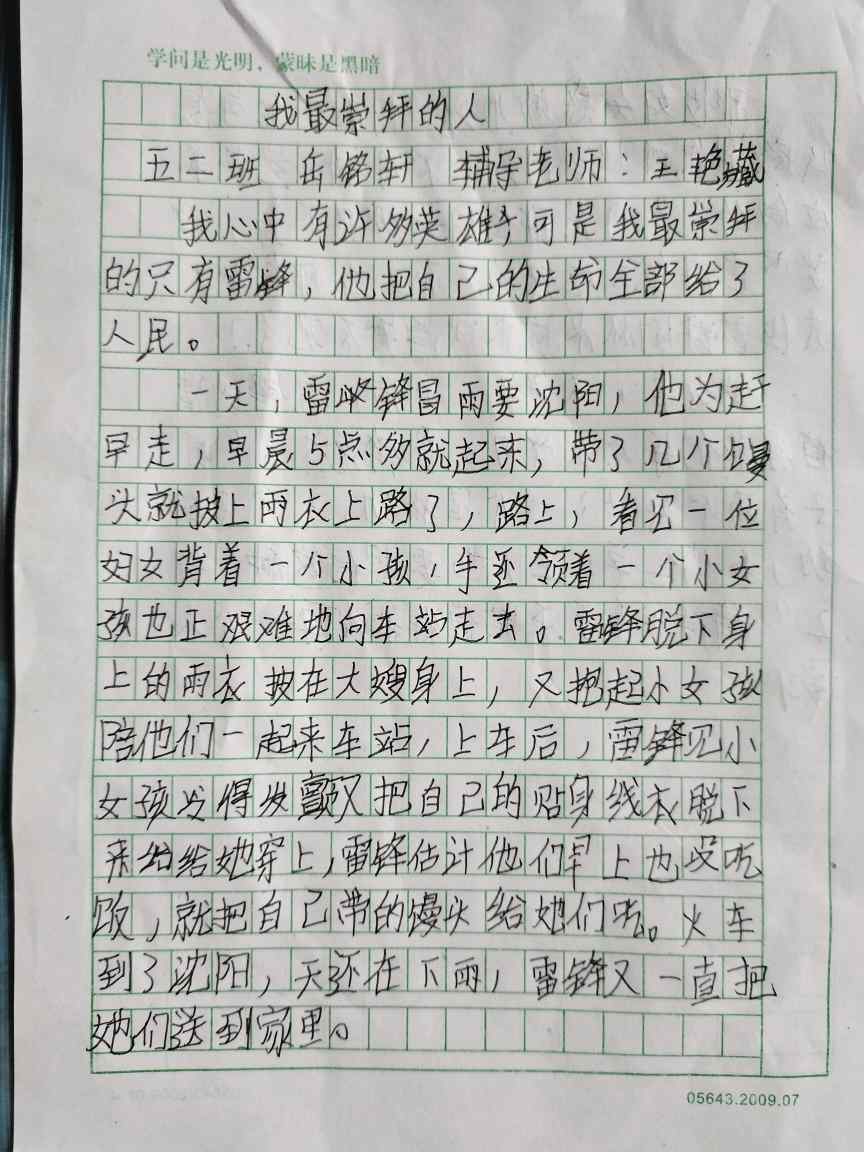 学问是光明，蒙昧是黑暗
我最崇拜的人
五二班 岳铭轩 辅导老师：王艳藏
我心中有许多英雄，可是我最崇拜
的只有雷锋，他把自己的生命全部给了
人民。
一天，雷锋冒雨要沈阳，他为赶
早走，早晨5点多就起来，带了几个馒
头就披上雨衣上路了，路上，看见一位
妇女背着一个小孩，手还领着一个小女
孩也正艰难地向车站走去。雷锋脱下身
上的雨衣披在大嫂身上，又抱起小女孩
陪他们一起来车站，上车后，雷锋见小
女孩发得发颤又把自己的贴身线衣脱下
来给给她穿上，雷锋估计他们早上也没吃
饭，就把自己带的馒头给她们吃。火车
到了沈阳，天还在下雨，雷锋又一直把
她们送到家里。
05643.2009.07